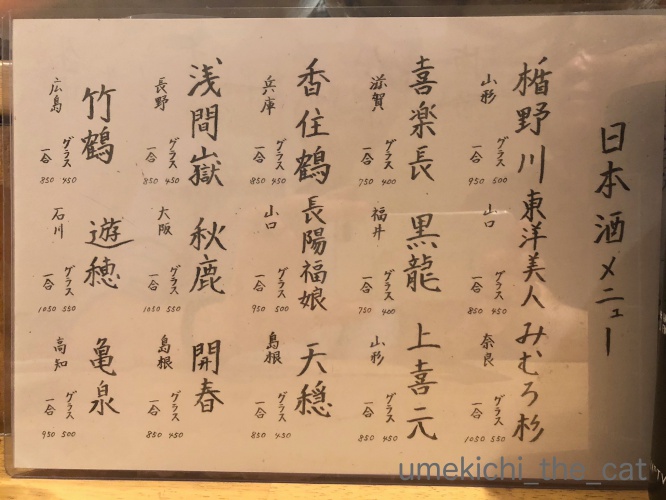 日本酒メニュー
楯野川
山形
グラス 500
一合 950
東洋美人
山口
グラス 450
一合 850
みむろ杉
奈良
グラス 550
一合 1050
喜楽長
滋賀
グラス 400
一合 750
黒龍
福井
グラス 400
一合 750
上喜元
山形
グラス 450
一合 850
香住鶴
兵庫
グラス 450
一合 850
長陽福娘
山口
グラス 500
一合 950
天穏
島根
グラス 450
一合 850
浅間嶽
長野
グラス 450
一合 850
秋鹿
大阪
グラス 550
一合 1050
開春
島根
グラス 450
一合 850
竹鶴
広島
グラス 450
一合 850
遊穂
石川
グラス 550
一合 1050
亀泉
高知
グラス 500
一合 950
umekichi_the_cat